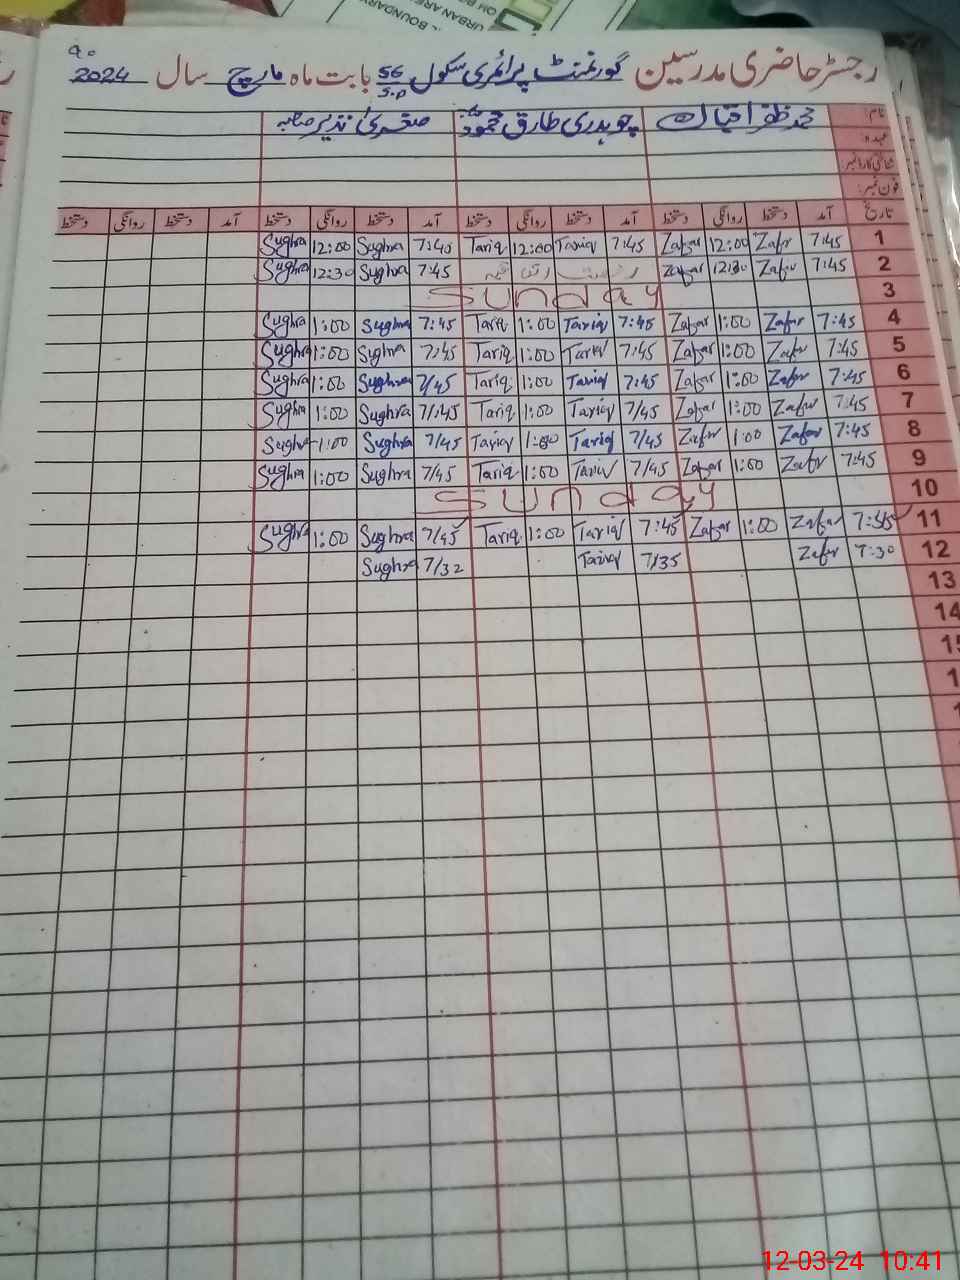 BOUNDARY
URBAN AREA
رجسٹر حاضری مدرسین گورنمنٹ پرائمری سکول 56 S.P بابت ماہ مارچ سال 2024
نام: محمد ظفر اقبال چوہدری طارق محمود صغریٰ نذیر صاحبہ
عہدہ
شناختی کارڈ نمبر:
فون نمبر:
تاریخ آمد دستخط روانگی دستخط آمد دستخط روانگی دستخط آمد دستخط روانگی دستخط آمد دستخط روانگی دستخط
1 7:45 Zafar 12:00 Zafar 7:45 Tariq 12:00 Tariq 7:40 Sughra 12:00 Sughra
2 7:45 Zafar 12:30 Zafar رخصت 7:45 Sughra 12:30 Sughra
3 Sunday
4 7:45 Zafar 1:00 Zafar 7:45 Tariq 1:00 Tariq 7:45 Sughra 1:00 Sughra
5 7:45 Zafar 1:00 Zafar 7:45 Tariq 1:00 Tariq 7:45 Sughra 1:00 Sughra
6 7:45 Zafar 1:00 Zafar 7:45 Tariq 1:00 Tariq 7/45 Sughra 1:00 Sughra
7 7:45 Zafar 1:00 Zafar 7/45 Tariq 1:00 Tariq 7/:45 Sughra 1:00 Sughra
8 7:45 Zafar 1:00 Zafar 7/45 Tariq 1:00 Tariq 7/45 Sughra 1:00 Sughra
9 7:45 Zafar 1:00 Zafar 7/45 Tariq 1:00 Tariq 7/45 Sughra 1:00 Sughra
10 Sunday
11 Zafar 1:00 Zafar 7:45 Tariq 1:00 Tariq 7/45 Sughra 1:00 Sughra
12 7:30 Zafar 7/35 Tariq 7/32 Sughra
13
14
12-03-24 10:41